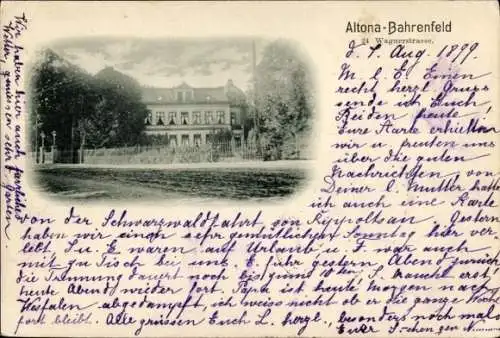 Altona-Bahrenfeld
24 Wagnerstrasse.
d. 7. Aug. 1899.
M. l. E. Einen
recht herzl. Gruss
sende ich Euch,
Beiden heute
Eure Karte erhielten
wir u. freuten uns
über die guten
Nachrichten von
Deiner l. Mutter hatte
ich auch eine Karte
von der Schwarzwaldfahrt von Gestern
haben wir einen sehr gemütlichen Sonntag hier ver-
lebt, S. u. E. waren auf Urlaub u. F. war auch
mit zu Tisch bei uns. E. fuhr gestern Abend zurück
die Trennung dauert noch bis zum S. braucht erst
heute Abend wieder fort. Papa ist heute Morgen nach
Westfalen abgedampft, ich weiss nicht ob er die ganze Woche
fort bleibt. Alle grüssen Euch L. herzl., besonders noch mals
Eure
Wir haben hier auch fürchterliches
Wetter, ganz